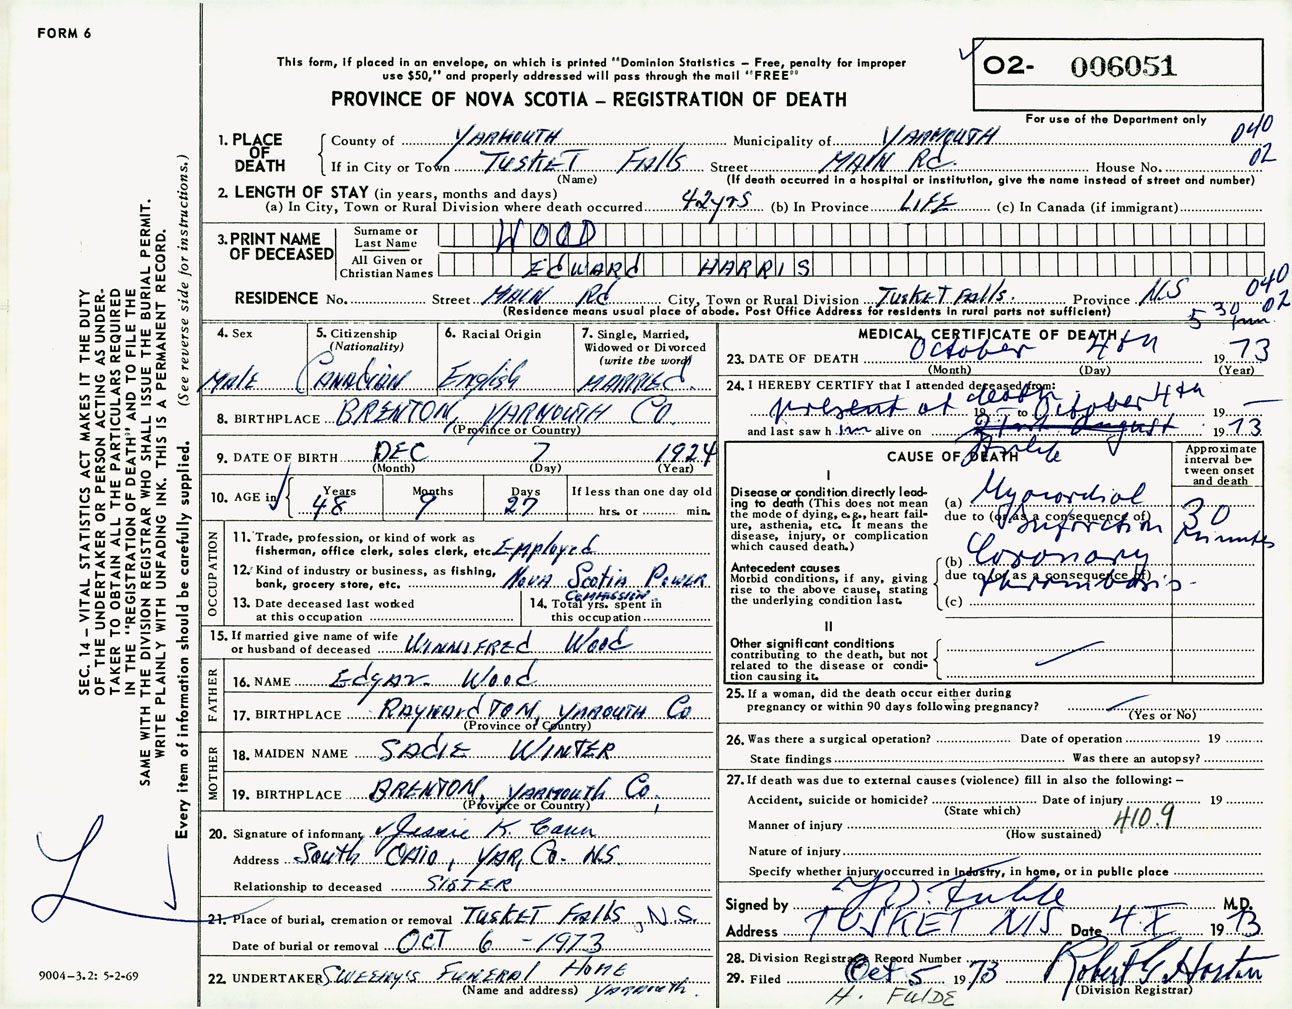 FORM 6
This form, if placed in an envelope, on which is printed "Dominion Statistics – Free, penalty for improper
use $50," and properly addressed will pass through the mail "FREE"
PROVINCE OF NOVA SCOTIA – REGISTRATION OF DEATH
02- 006051
For use of the Department only
1. PLACE OF DEATH
County of YARMOUTH Municipality of YARMOUTH 040
If in City or Town TUSKET Falls Street MAIN Rd. House No. 02
(Name) (If death occurred in a hospital or institution, give the name instead of street and number)
2. LENGTH OF STAY (in years, months and days)
(a) In City, Town or Rural Division where death occurred 42 yrs (b) In Province LIFE (c) In Canada (if immigrant)
3. PRINT NAME OF DECEASED
Surname or Last Name WOOD
All Given or Christian Names EDWARD HARRIS
RESIDENCE No. Street MAIN Rd City, Town or Rural Division Tusket Falls. Province N.S 040
(Residence means usual place of abode. Post Office Address for residents in rural parts not sufficient) 02
4. Sex
Male
5. Citizenship
(Nationality)
Canadian
6. Racial Origin
English
7. Single, Married,
Widowed or Divorced
(write the word)
MARRIED.
8. BIRTHPLACE BRENTON, YARMOUTH Co.
(Province or Country)
9. DATE OF BIRTH DEC 7 1924
(Month) (Day) (Year)
10. AGE in
Years Months Days If less than one day old
48 9 27 hrs. or min.
OCCUPATION
11. Trade, profession, or kind of work as
fisherman, office clerk, sales clerk, etc. Employed
12. Kind of industry or business, as fishing,
bank, grocery store, etc. Nova Scotia Power
COMMISSION.
13. Date deceased last worked
at this occupation
14. Total yrs. spent in
this occupation
15. If married give name of wife
or husband of deceased WINNIFRED WOOD
FATHER
16. NAME Edgar Wood
17. BIRTHPLACE RAYNARDTON, YARMOUTH Co
(Province or Country)
MOTHER
18. MAIDEN NAME SADIE WINTER
19. BIRTHPLACE BRENTON, YARMOUTH Co,
(Province or Country)
20. Signature of informant Jessie K. Cann
Address South OHIO, YAR. Co. N.S.
Relationship to deceased SISTER
21. Place of burial, cremation or removal TUSKET Falls, N.S.
Date of burial or removal OCT 6 - 1973
22. UNDERTAKER SWEENY'S FUNERAL HOME
(Name and address) YARMOUTH.
5 30
MEDICAL CERTIFICATE OF DEATH
23. DATE OF DEATH October 4th 19 73
(Month) (Day) (Year)
24. I HEREBY CERTIFY that I attended deceased from:
present at death 19 to October 4th 19 —
and last saw him alive on 21st August 19 73
CAUSE OF DEATH
Approximate interval between onset and death
I
Disease or condition directly leading
to death (This does not mean
the mode of dying, e.g., heart failure,
asthenia, etc. It means the
disease, injury, or complication
which caused death.)
(a) Myocardial
due to (or as a consequence of)
Infarction
30 minutes
Antecedent causes
Morbid conditions, if any, giving
rise to the above cause, stating
the underlying condition last.
(b) Coronary
due to (or as a consequence of)
thrombosis.
(c)
II
Other significant conditions
contributing to the death, but not
related to the disease or condition
causing it.
25. If a woman, did the death occur either during
pregnancy or within 90 days following pregnancy?
(Yes or No)
26. Was there a surgical operation? Date of operation 19
State findings Was there an autopsy?
27. If death was due to external causes (violence) fill in also the following: –
Accident, suicide or homicide? Date of injury 19
(State which)
Manner of injury 410.9
(How sustained)
Nature of injury
Specify whether injury occurred in industry, in home, or in public place
Signed by H. Fulde M.D.
Address TUSKET N/S Date 4 X 19 73
28. Division Registrar's Record Number
29. Filed Oct 5 1973 Robert G. Horton
(Division Registrar)
H. FULDE
SEC. 14 – VITAL STATISTICS ACT MAKES IT THE DUTY
OF THE UNDERTAKER OR PERSON ACTING AS UNDERTAKER
TO OBTAIN ALL THE PARTICULARS REQUIRED
IN THE "REGISTRATION OF DEATH" AND TO FILE THE
SAME WITH THE DIVISION REGISTRAR WHO SHALL ISSUE THE BURIAL PERMIT.
WRITE PLAINLY WITH UNFADING INK. THIS IS A PERMANENT RECORD.
Every item of information should be carefully supplied. (See reverse side for instructions.)
9004-3.2: 5-2-69